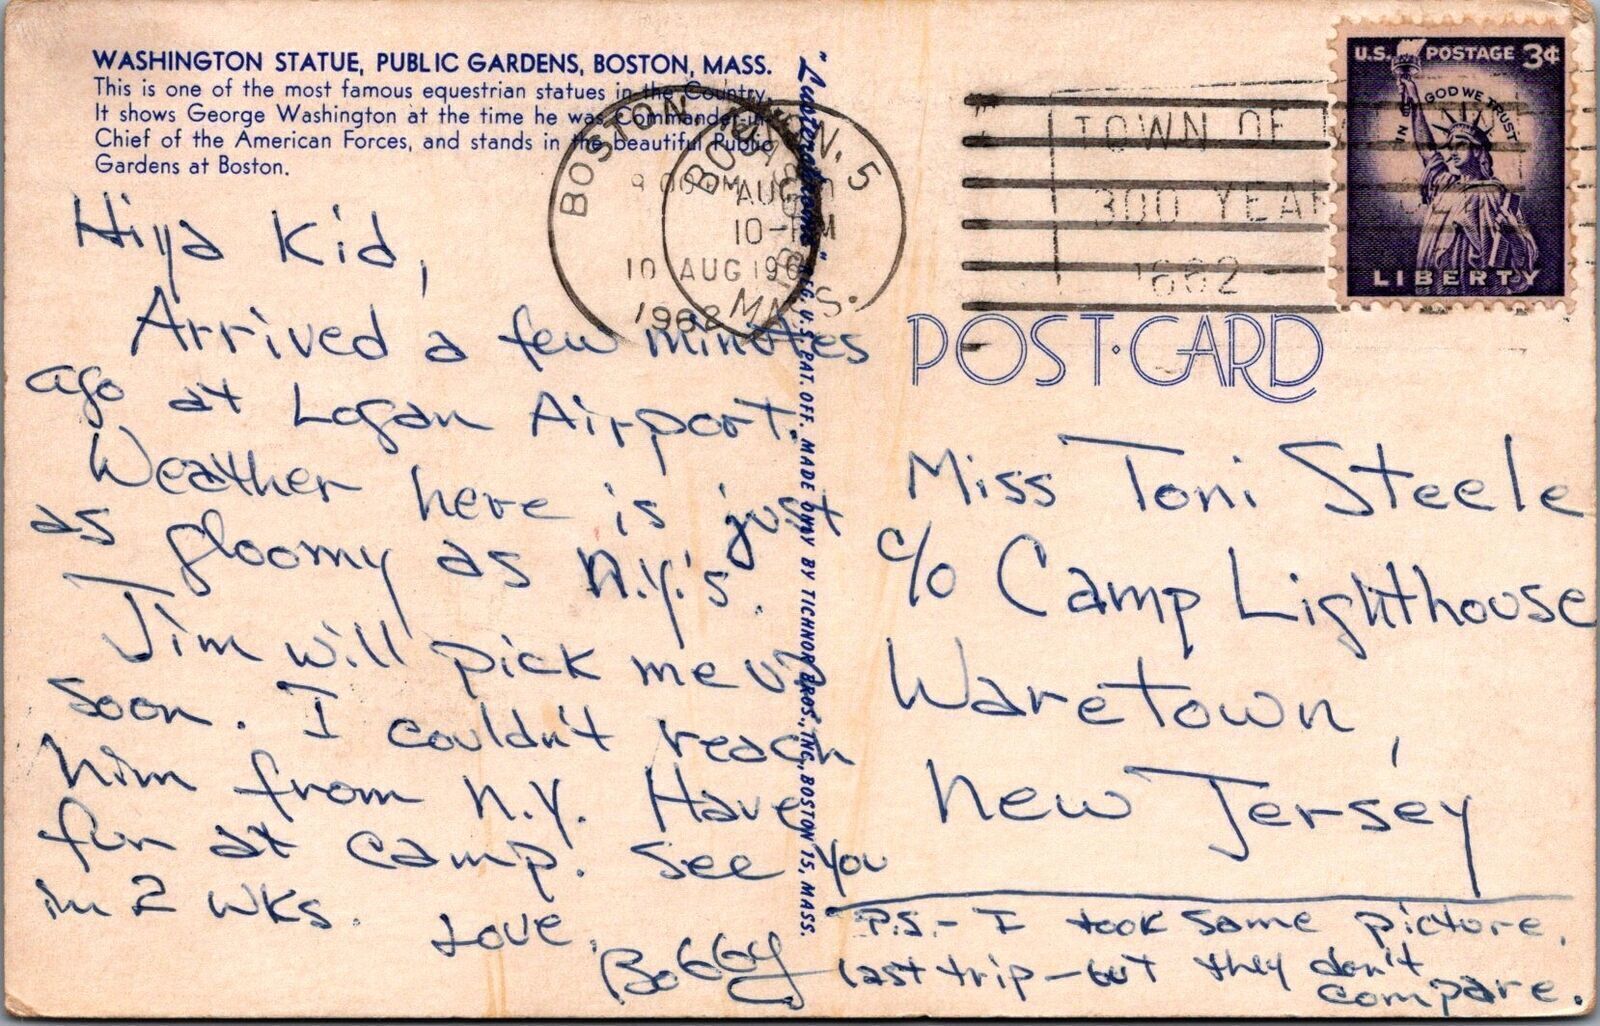 WASHINGTON STATUE, PUBLIC GARDENS, BOSTON, MASS.
This is one of the most famous equestrian statues in the Country.
It shows George Washington at the time he was Commander-in-
Chief of the American Forces, and stands in the beautiful Public
Gardens at Boston.
Hiya Kid,
Arrived a few minutes
ago at Logan Airport.
Weather here is just
as gloomy as N.Y.'s.
Jim will pick me up
soon. I couldn't reach
him from N.Y. Have
fun at camp. See you
in 2 wks.
Love,
Bobby
"Lusterchrome" REG. U.S. PAT. OFF. MADE ONLY BY TICHNOR BROS., INC., BOSTON 15, MASS.
BOSTON
BOSTON
AUG
10-PM
10 AUG 196
1962
MASS.
TOWN OF
300 YEAR
1662
U.S. POSTAGE 3¢
IN GOD WE TRUST
LIBERTY
POST·CARD
Miss Toni Steele
c/o Camp Lighthouse
Waretown,
New Jersey
P.S. - I took same picture,
last trip - but they don't
compare.